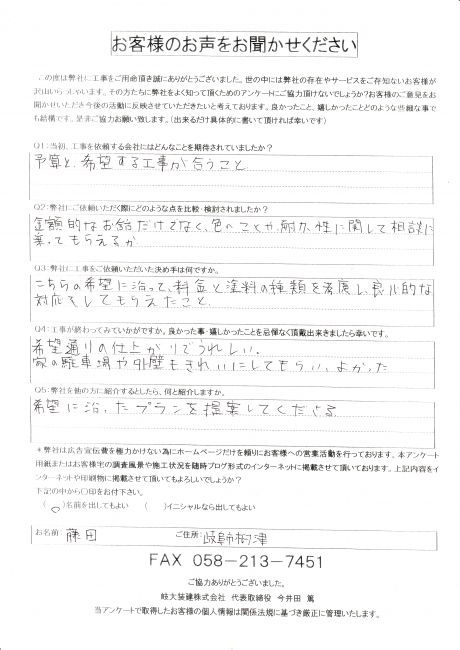 お客様のお声をお聞かせください
この度は弊社に工事をご用命頂き誠にありがとうございました。世の中には弊社の存在やサービスをご存知ないお客様が
沢山いらっしゃいます。その方たちに弊社をよく知って頂くためのアンケートにご協力頂けないでしょうか?お客様のご意見をお
聞かせいただき今後の活動に反映させていただきたいと考えております。良かったこと、嬉しかったことどのような些細な事で
も結構です。是非ご協力お願い致します。(出来るだけ具体的に書いて頂ければ幸いです)
Q1:当初、工事を依頼する会社にはどんなことを期待されていましたか?
予算と、希望する工事が合うこと
Q2:弊社にご依頼いただく際にどのような点を比較・検討されましたか?
金額的なお話だけでなく、色のことや、耐久性に関して相談に
乗ってもらえるか
Q3:弊社に工事をご依頼いただいた決め手は何ですか。
こちらの希望に沿って、料金と塗料の種類を考慮し、良心的な
対応をしてもらえたこと。
Q4:工事が終わってみていかがですか。良かった事・嬉しかったことを忌憚なく頂戴出来きましたら幸いです。
希望通りの仕上がりでうれしい。
家の駐車場や外壁もきれいにしてもらい、よかった
Q5:弊社を他の方に紹介するとしたら、何と紹介しますか。
希望に沿ったプランを提案してくださる
*弊社は広告宣伝費を極力かけない為にホームページだけを頼りにお客様への営業活動を行っております。本アンケート
用紙またはお客様宅の調査風景や施工状況を随時ブログ形式のインターネットに掲載させて頂いております。上記内容をイ
ンターネットや印刷物に掲載させて頂いてもよろしいでしょうか?
下記の中から〇印をお付下さい。
(○)名前を出してもよい ( )イニシャルなら出してもよい
お名前: 藤田 ご住所: 岐阜市柳津
FAX 058-213-7451
ご協力ありがとうございました。
岐大装建株式会社 代表取締役 今井田 篤
当アンケートで取得したお客様の個人情報は関係法規に基づき厳正に管理いたします。